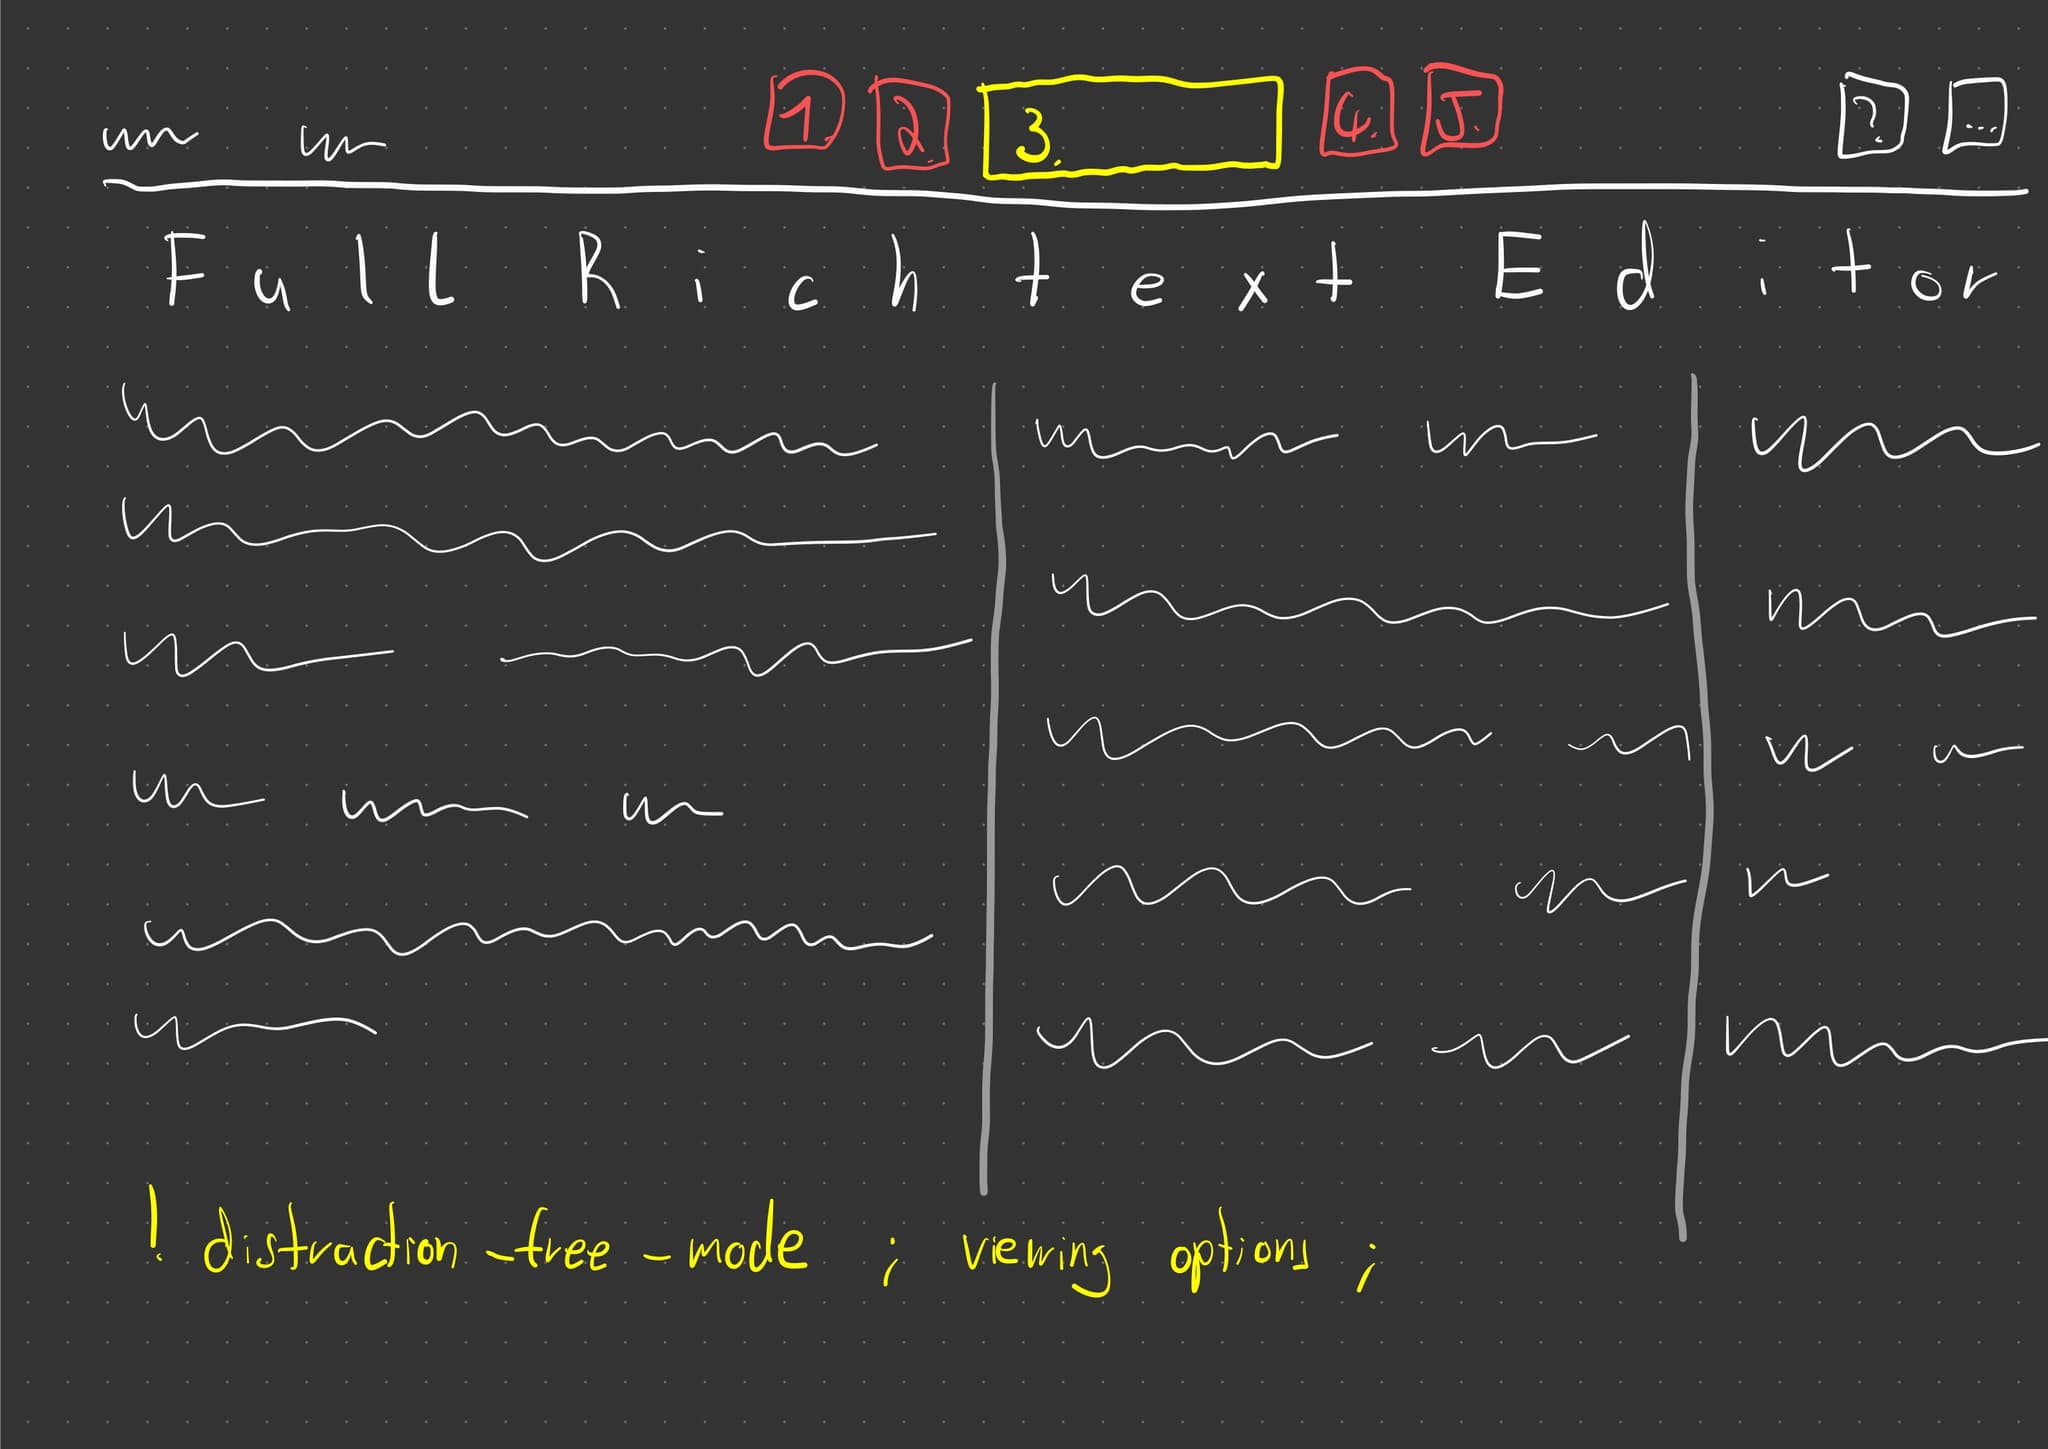 1. 2. 3. 4. 5. ? ...
Full Richtext Editor
! distraction-free-mode ; viewing options ;